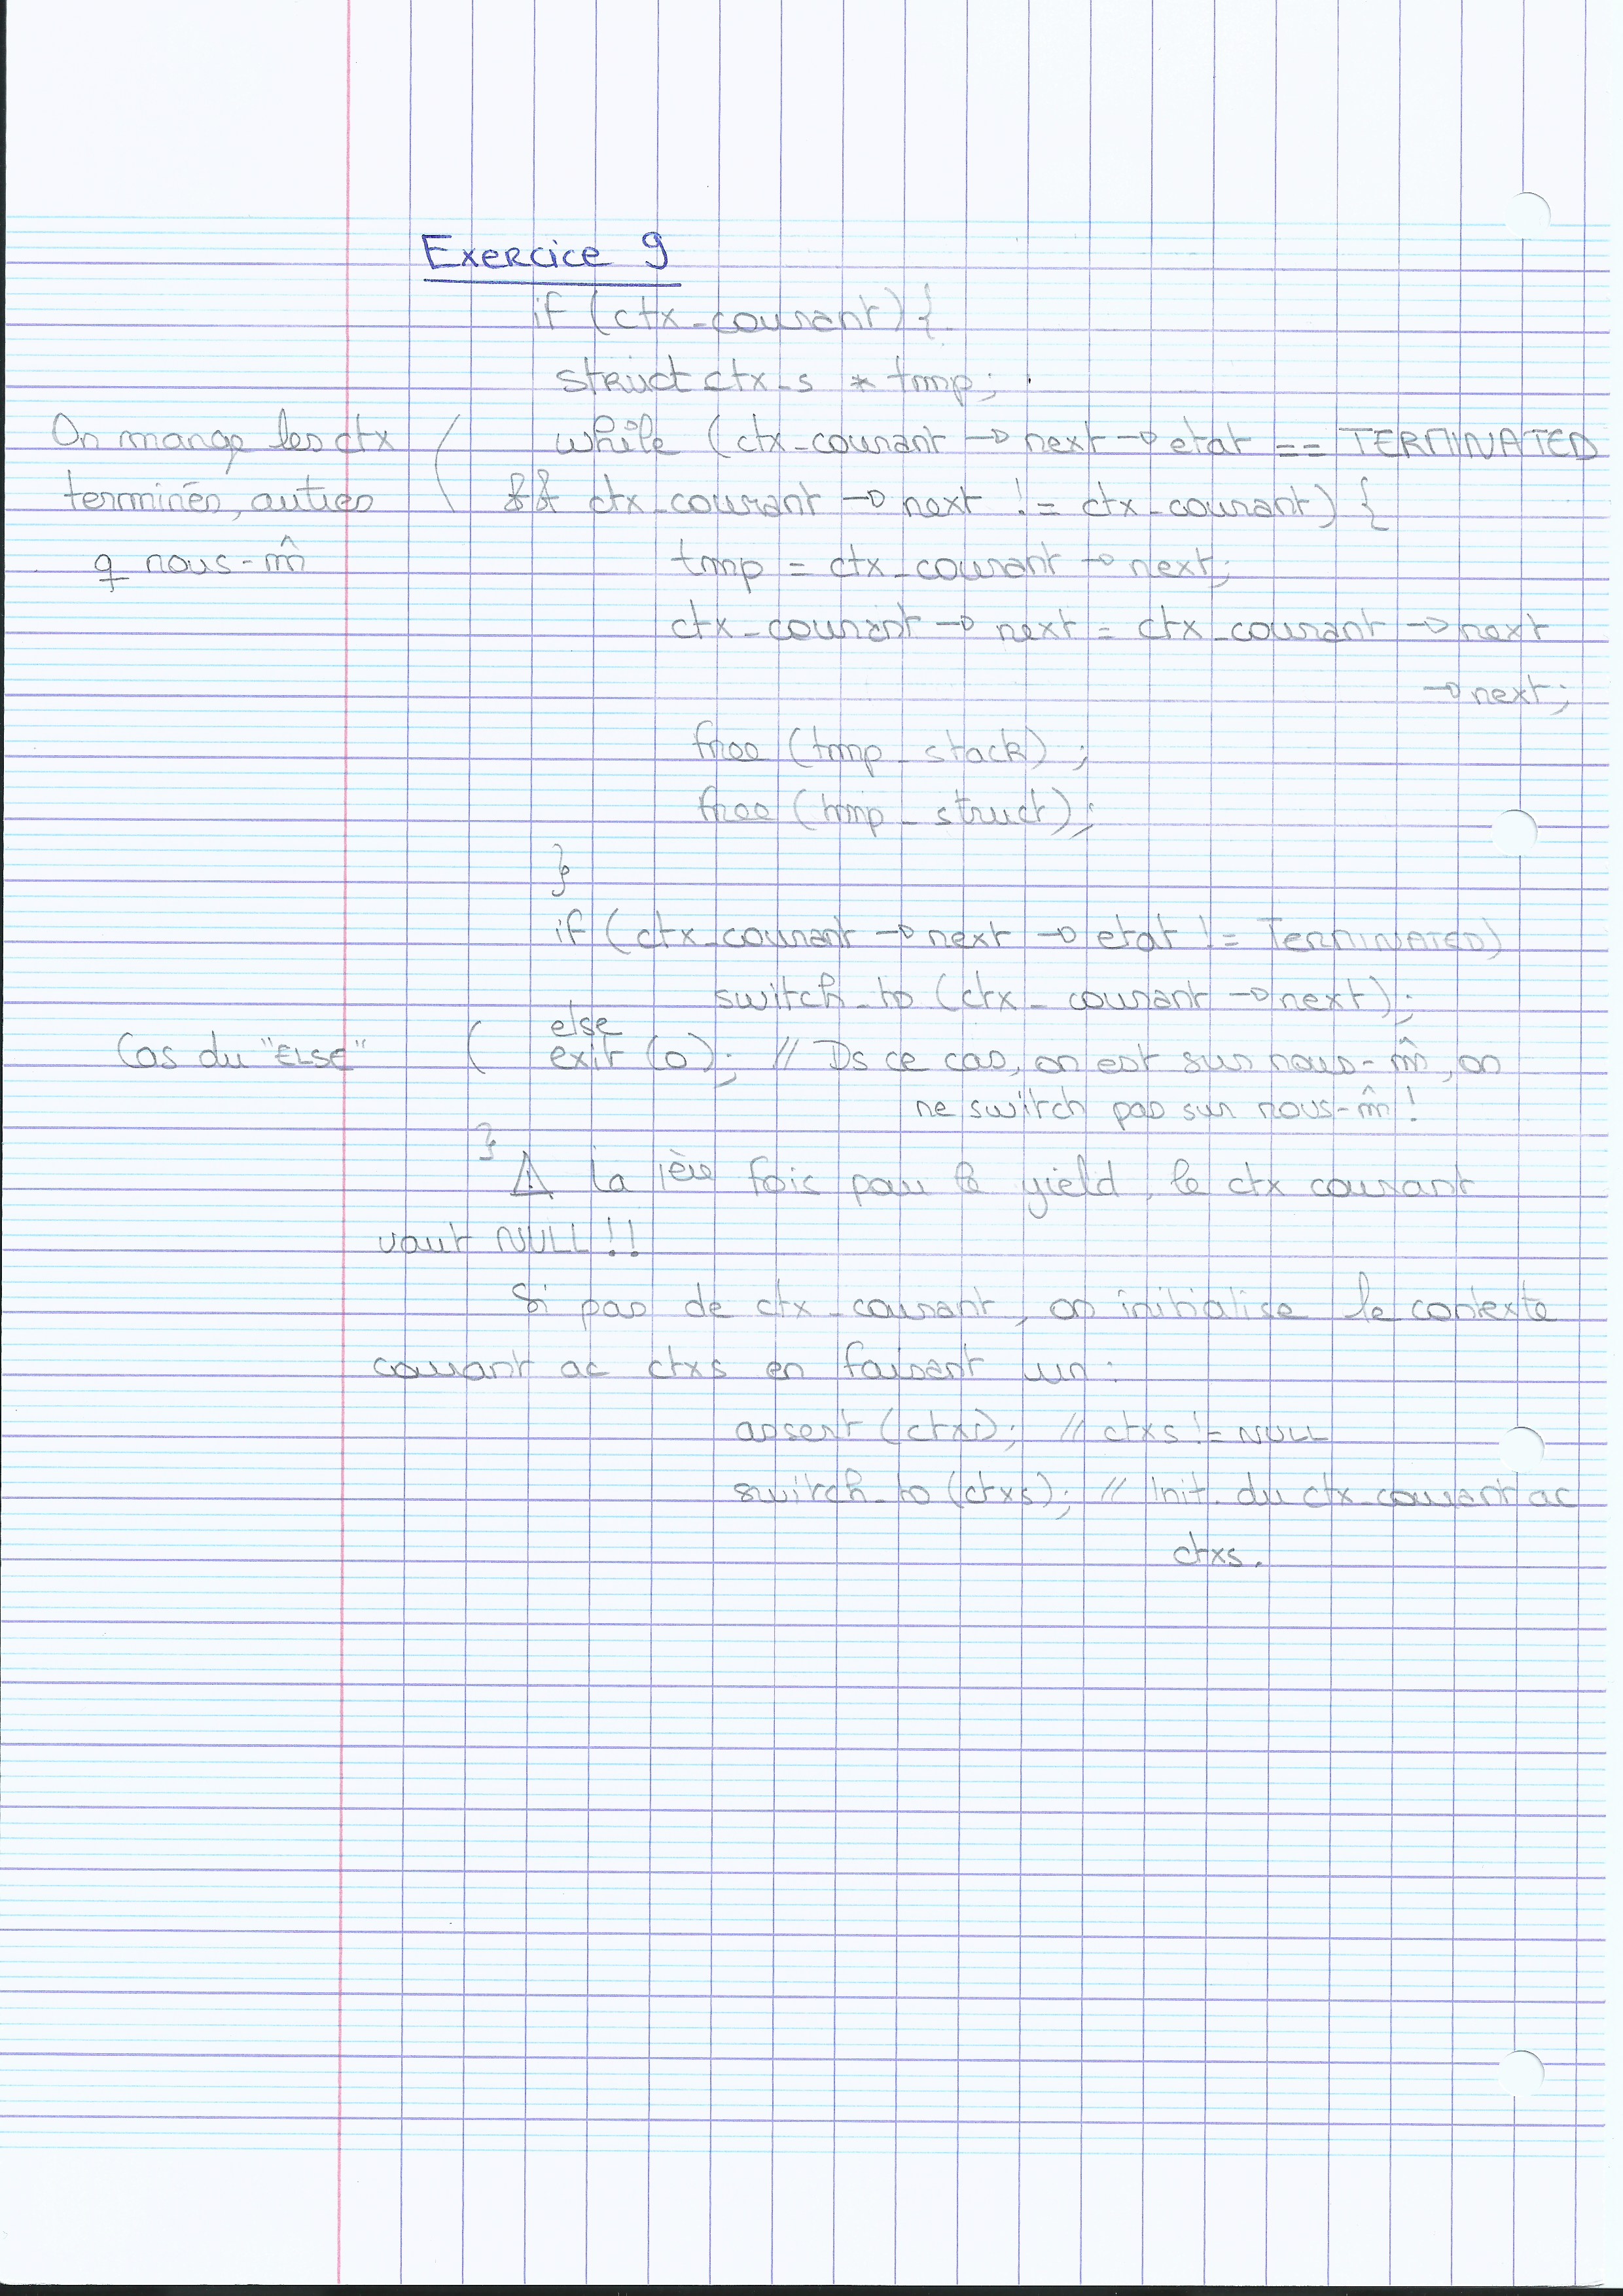 Exercice 9
if (ctx_courant) {
struct ctx_s * tmp;
On mange les ctx
terminés, autres
q nous-m̂
while (ctx_courant -> next -> etat == TERMINATED
&& ctx_courant -> next != ctx_courant) {
tmp = ctx_courant -> next;
ctx_courant -> next = ctx_courant -> next
-> next;
free (tmp_stack);
free (tmp_struct);
}
if (ctx_courant -> next -> etat != TERMINATED)
switch_to (ctx_courant -> next);
else
Cas du "ELSE"
exit (0); // Ds ce cas, on est sur nous-m̂, on
ne switch pas sur nous-m̂ !
}
⚠ La 1ère fois pour le yield, le ctx courant
vaut NULL !!
Si pas de ctx_courant, on initialise le contexte
courant ac ctxs en faisant un :
assert (ctxs); // ctxs != NULL
switch_to (ctxs); // Init. du ctx_courant ac
ctxs.